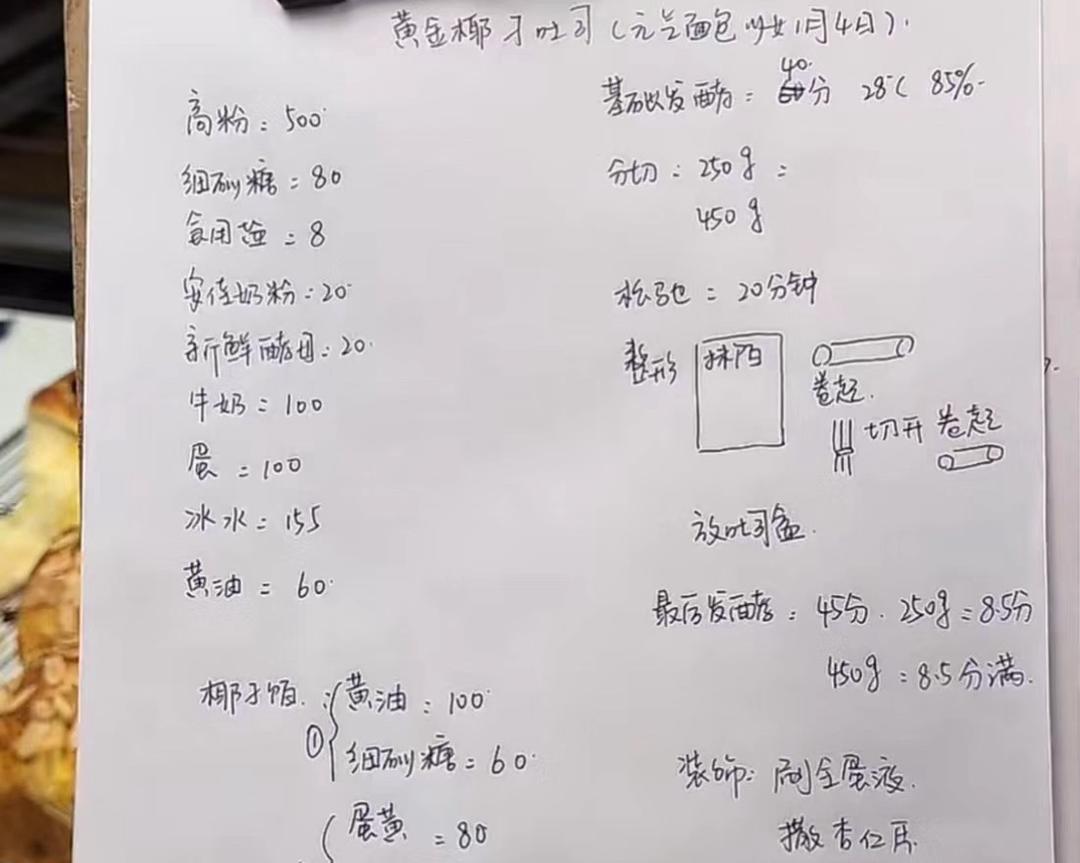 黄金椰子吐司(元兰面包少女1月4日).
高粉:500
细砂糖=80
食用盐=8
安佳奶粉:20
新鲜酵母:20
牛奶=100
蛋=100
冰水=155
黄油=60
椰子馅.①
黄油:100
细砂糖=60
蛋黄=80
基础发酵:40分 28℃ 85%
分切:250g:
450g
松弛=20分钟
整形 抹馅
卷起.
切开 卷起
放吐司盒.
最后发酵:45分.250g=8.5分
450g:8.5分满.
装饰:刷全蛋液.
撒杏仁片